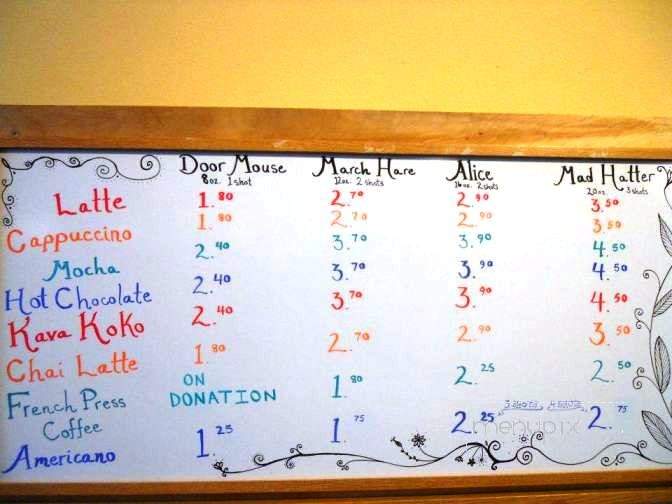 Door Mouse March Hare Alice Mad Hatter
8oz. 1shot 12oz. 2 shots 16oz. 2shots 20oz. 3 shots
Latte 1.80 2.70 2.90 3.50
Cappuccino 1.80 2.70 2.90 3.50
Mocha 2.40 3.70 3.90 4.50
Hot Chocolate 2.40 3.70 3.90 4.50
Kava KoKo 2.40 3.70 3.90 4.50
Chai Latte 1.80 2.70 2.90 3.50
French Press Coffee ON DONATION 1.80 2.25 2.50
3 shots 4 shots
Americano 1.25 1.75 2.25 2.75
menupix